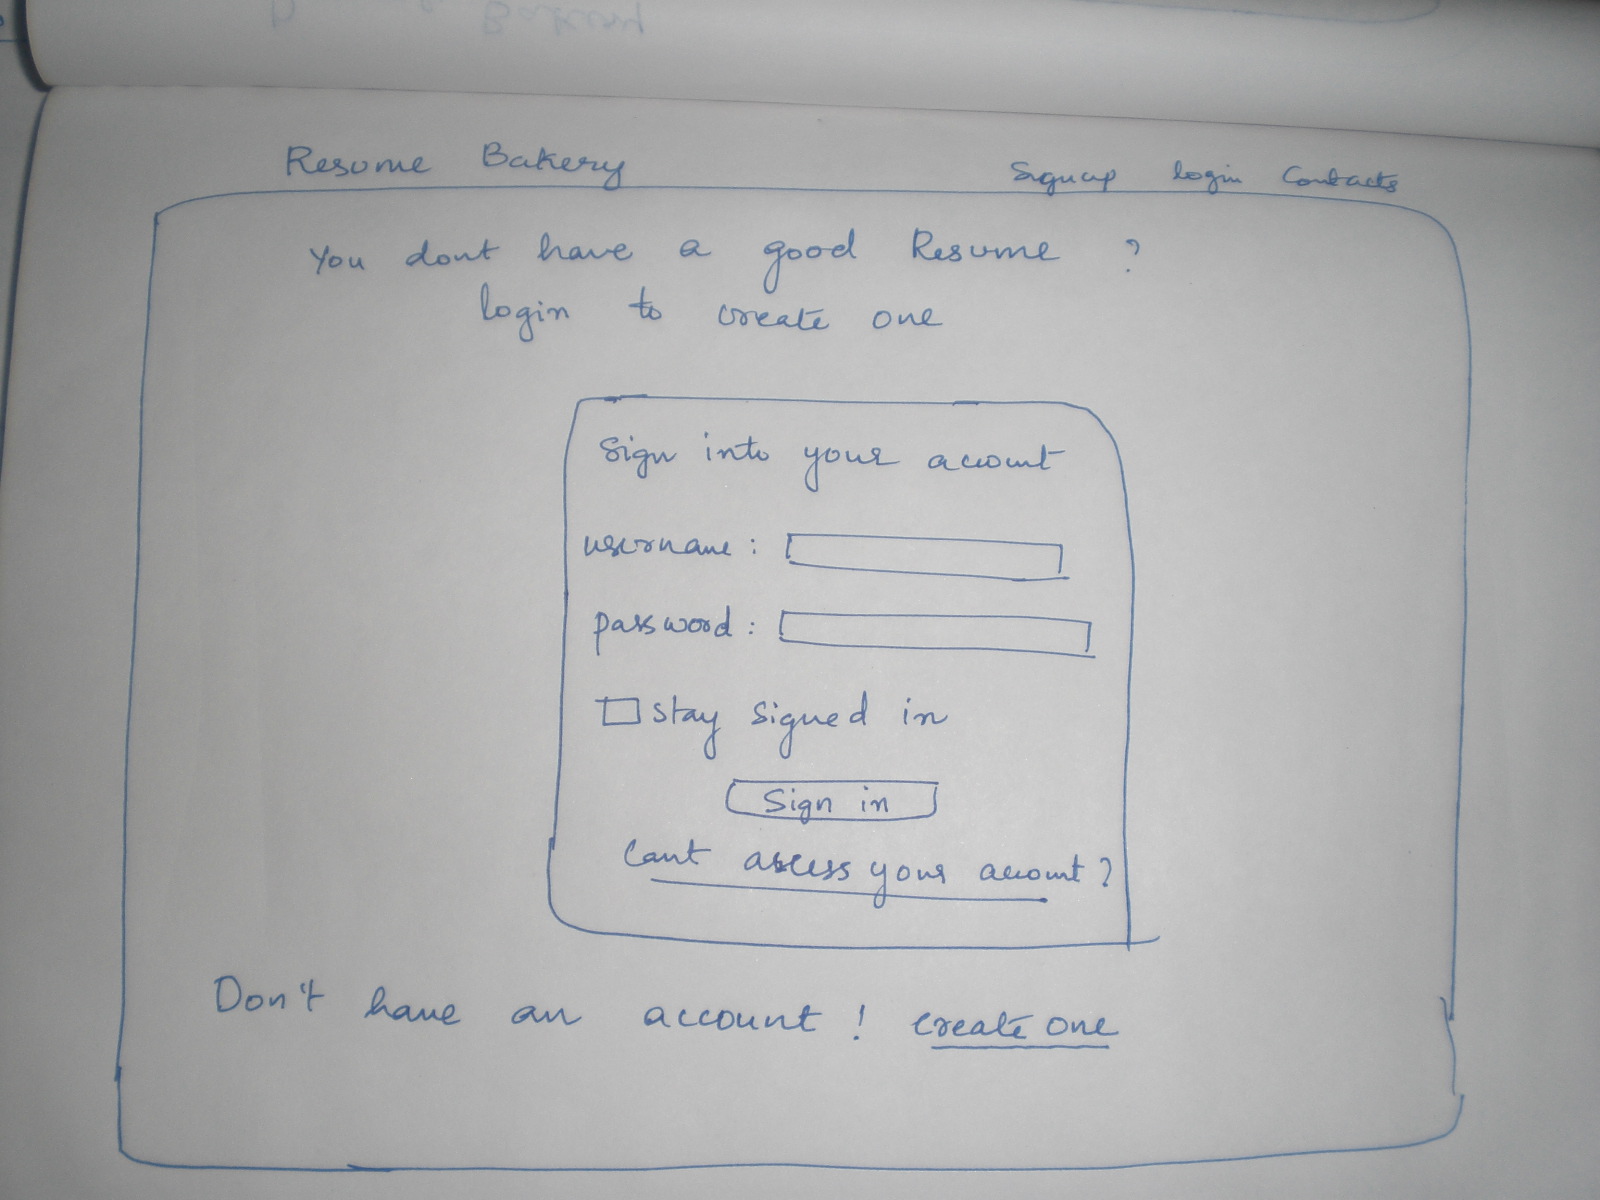 Bakery
Resume Bakery
Signup login Contacts
You dont have a good Resume ?
login to create one
Sign into your acount
username :
password :
stay signed in
Sign in
Cant access your acount?
Don't have an account ! create one